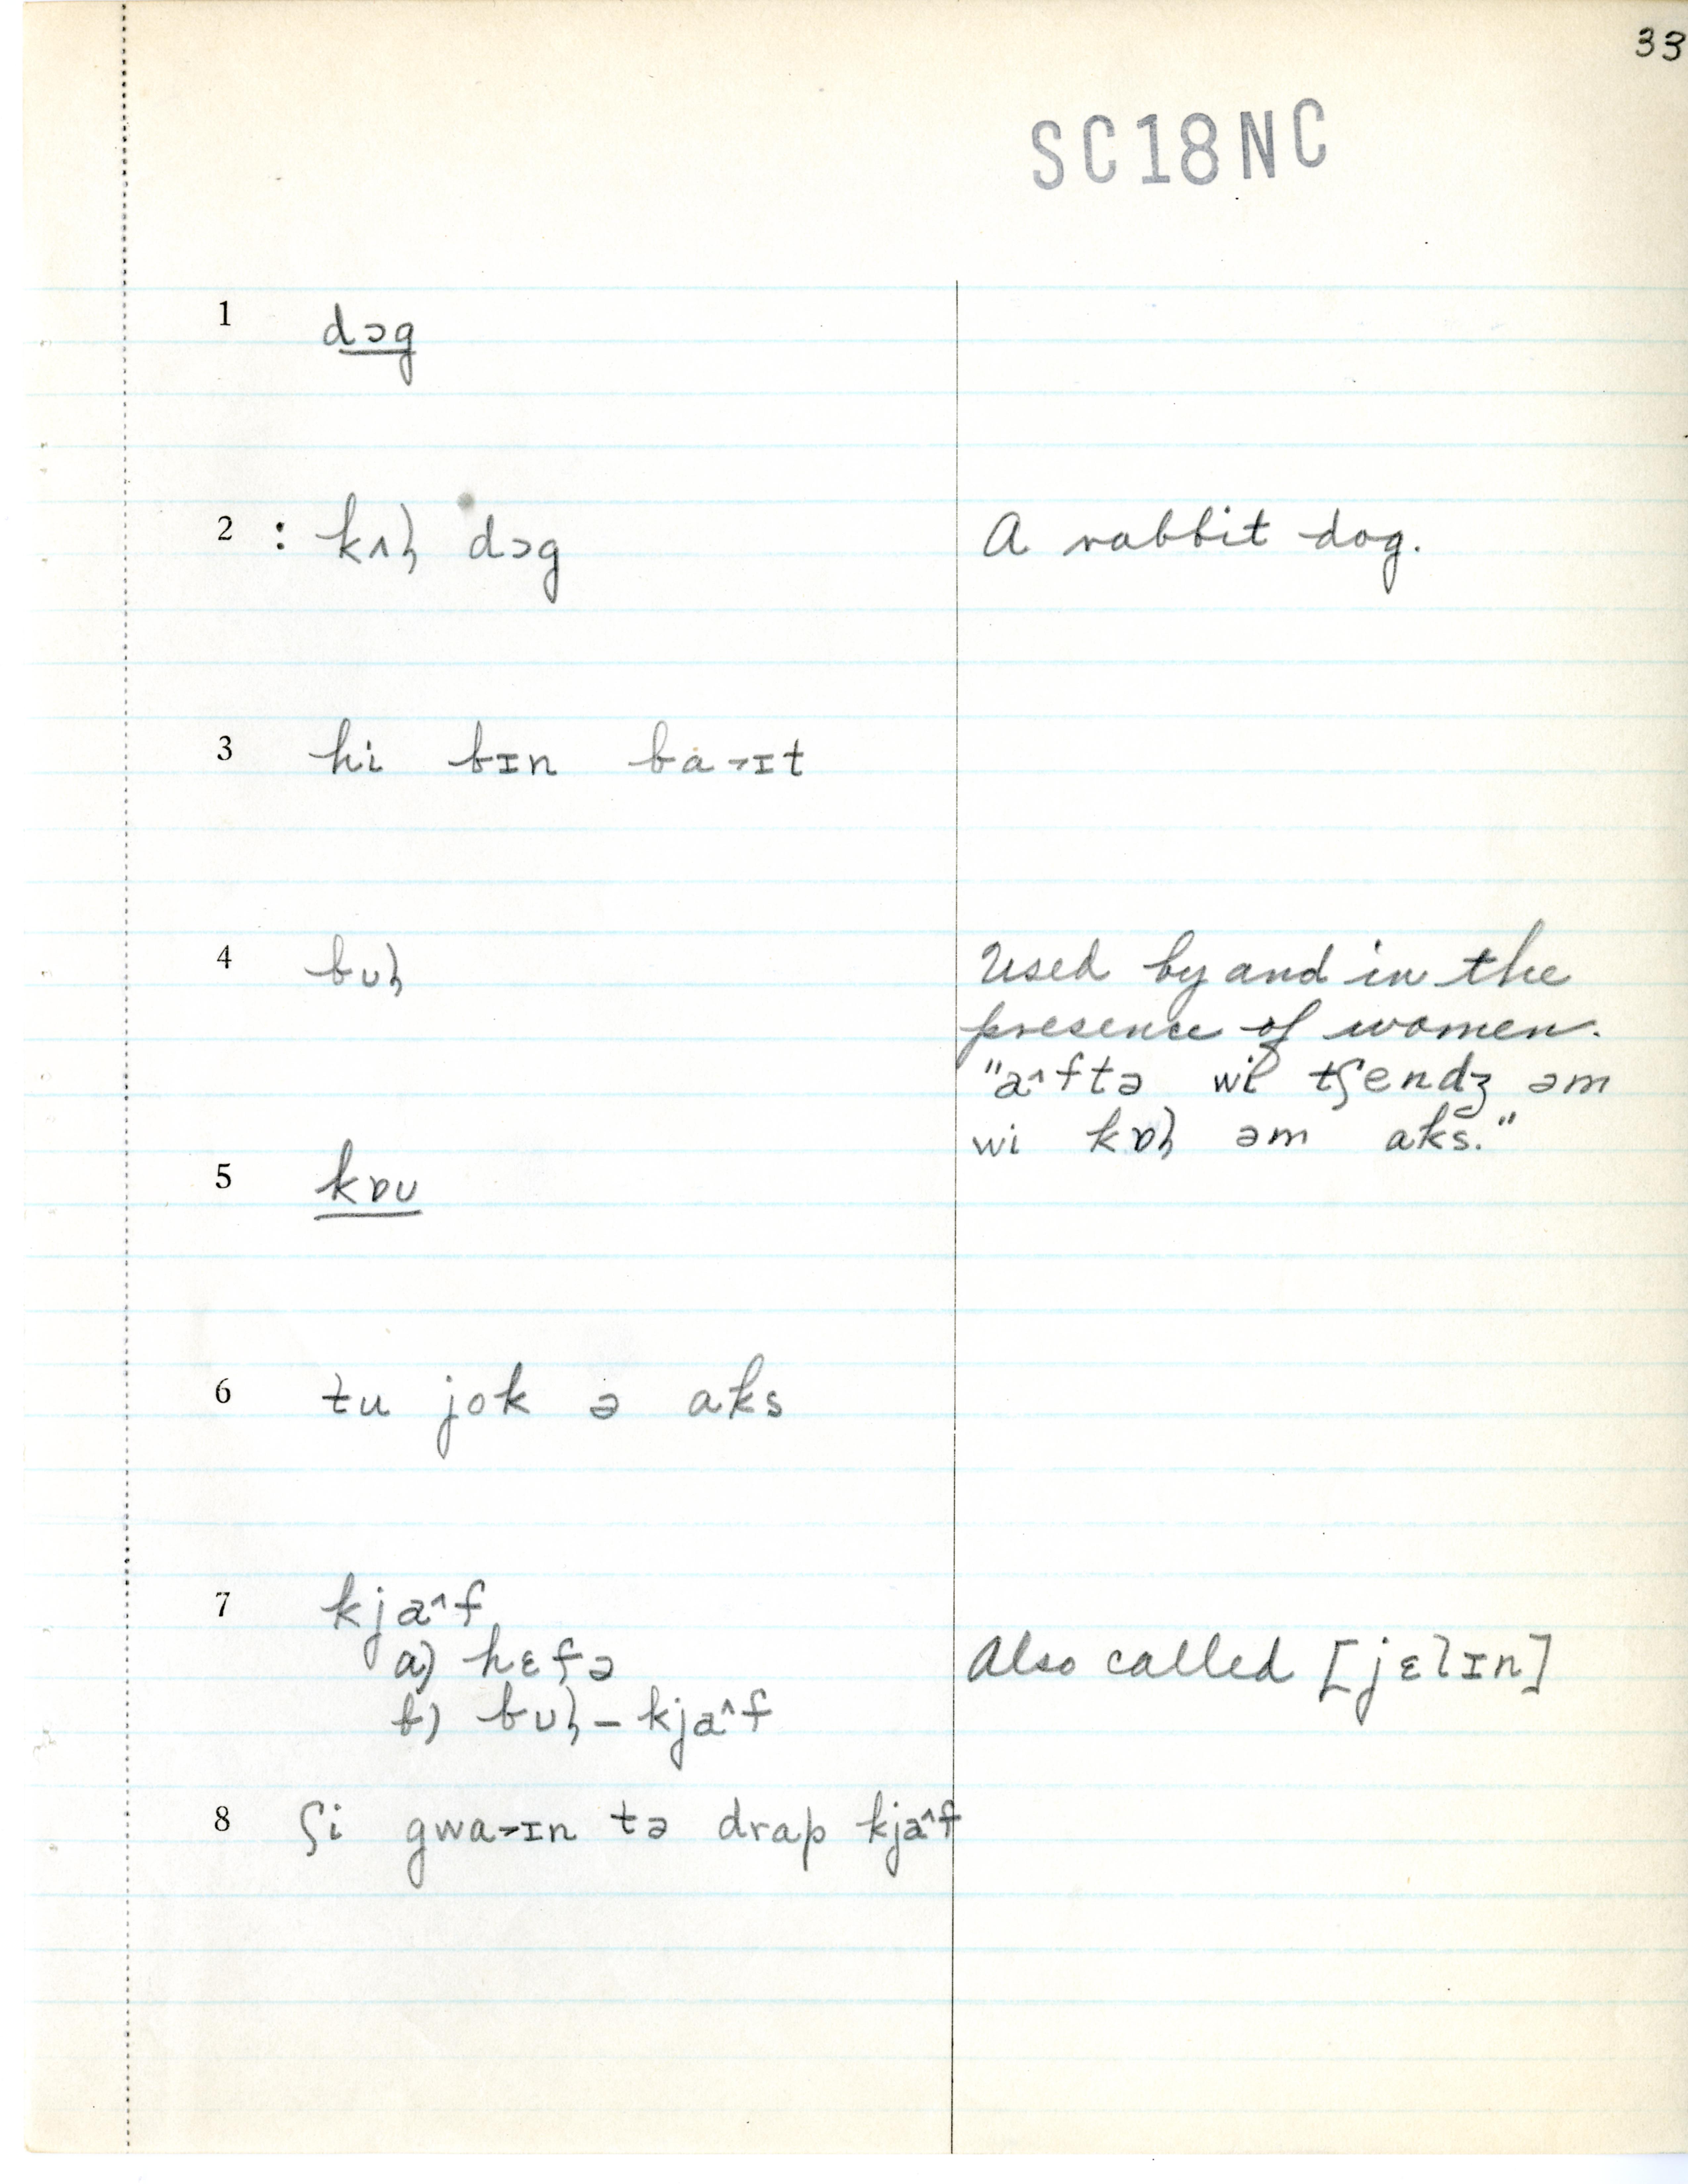 33
SC18NC
1 dɔg
2 : kʌɦ dɔg A rabbit dog.
3 hi bɪn ba˃ɪt
4 bʊɦ Used by and in the
presence of women.
"a^ftə wi tʃendʒ əm
wi kɒɦ əm aks."
5 kɒʊ
6 tu jok ə aks
7 kja^f
a) hɛfə Also called [jɛlɪn]
b) bʊɦ – kja^f
8 ʃi gwa˃ɪn tə drap kja^f